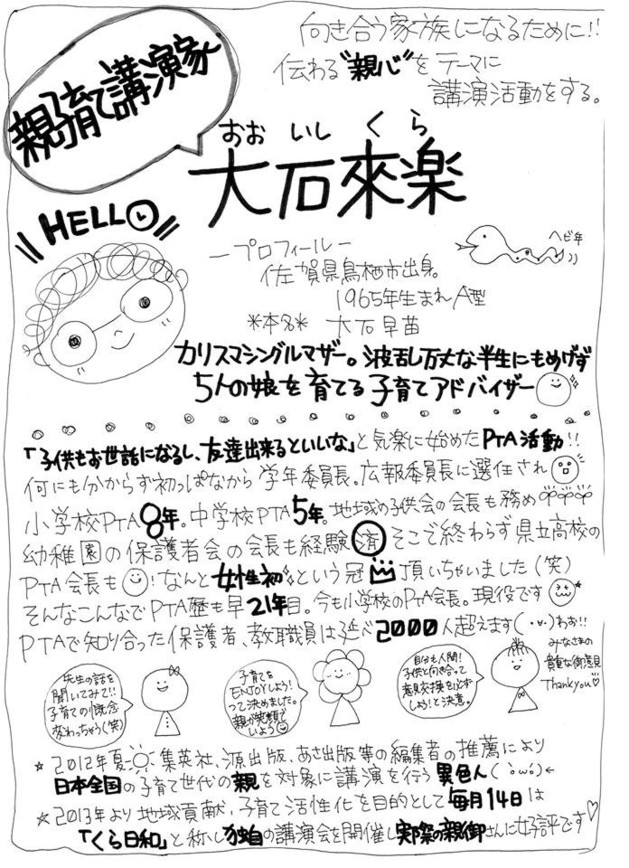 向き合う家族になるために!!
伝わる"親心"をテーマに
講演活動をする。
親子育て講演家
おおいし くら
大石來楽
HELLO
ープロフィールー
ヘビ年
佐賀県鳥栖市出身。
1965年生まれA型
*本名* 大石早苗
カリスマシングルマザー。波乱万丈な半生にもめげず
5人の娘を育てる子育てアドバイザー
「子供もお世話になるし、友達出来るといいな」と気楽に始めたPTA活動!!
何にも分からず初っぱなから学年委員長。広報委員長に選任され
小学校PTA8年。中学校PTA5年。地域の子供会の会長も務め
幼稚園の保護者会の会長も経験済そこで終わらず県立高校の
PTA会長も!なんと女性初という冠頂いちゃいました(笑)
そんなこんなでPTA歴も早21年目。今も小学校のPTA会長。現役です
PTAで知り合った保護者、教職員は延べ2000人超えます(・v・)わぉ!!
みなさまの
貴重な御意見
Thankyou
先生の話を
聞いてみて!!
子育ての概念
変わっちゃう(笑)
子育てを
ENJOYしよう!
って決めました。
親が笑顔で
いよう
自分も人間!
子供と向き合って
意見交換を必ず
しよう!と決意。
☆2012年夏 集英社、源出版、あさ出版等の編集者の推薦により
日本全国の子育て世代の親を対象に講演を行う異色人(・ω・)←
☆2013年より地域貢献、子育て活性化を目的として毎月14日は
「くら日和」と称し独自の講演会を開催し実際の親御さんに好評です♡